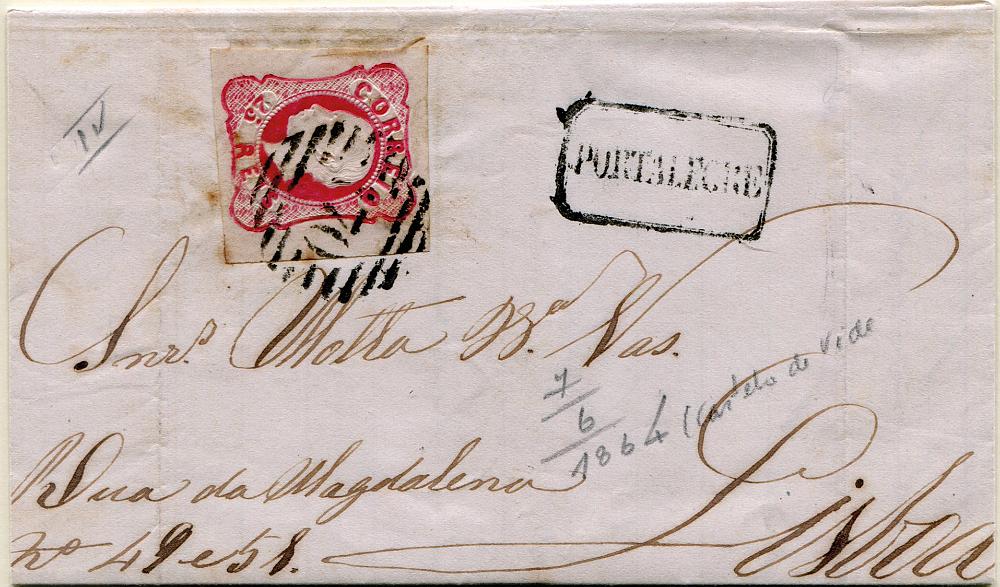 IV
CORREIO
25 REIS
PORTALEGRE
Snrs. Motta Va. Vas.
7/6/1864 (Castelo de Vide
Rua da Magdalena
No 49 e 58.
Lisboa